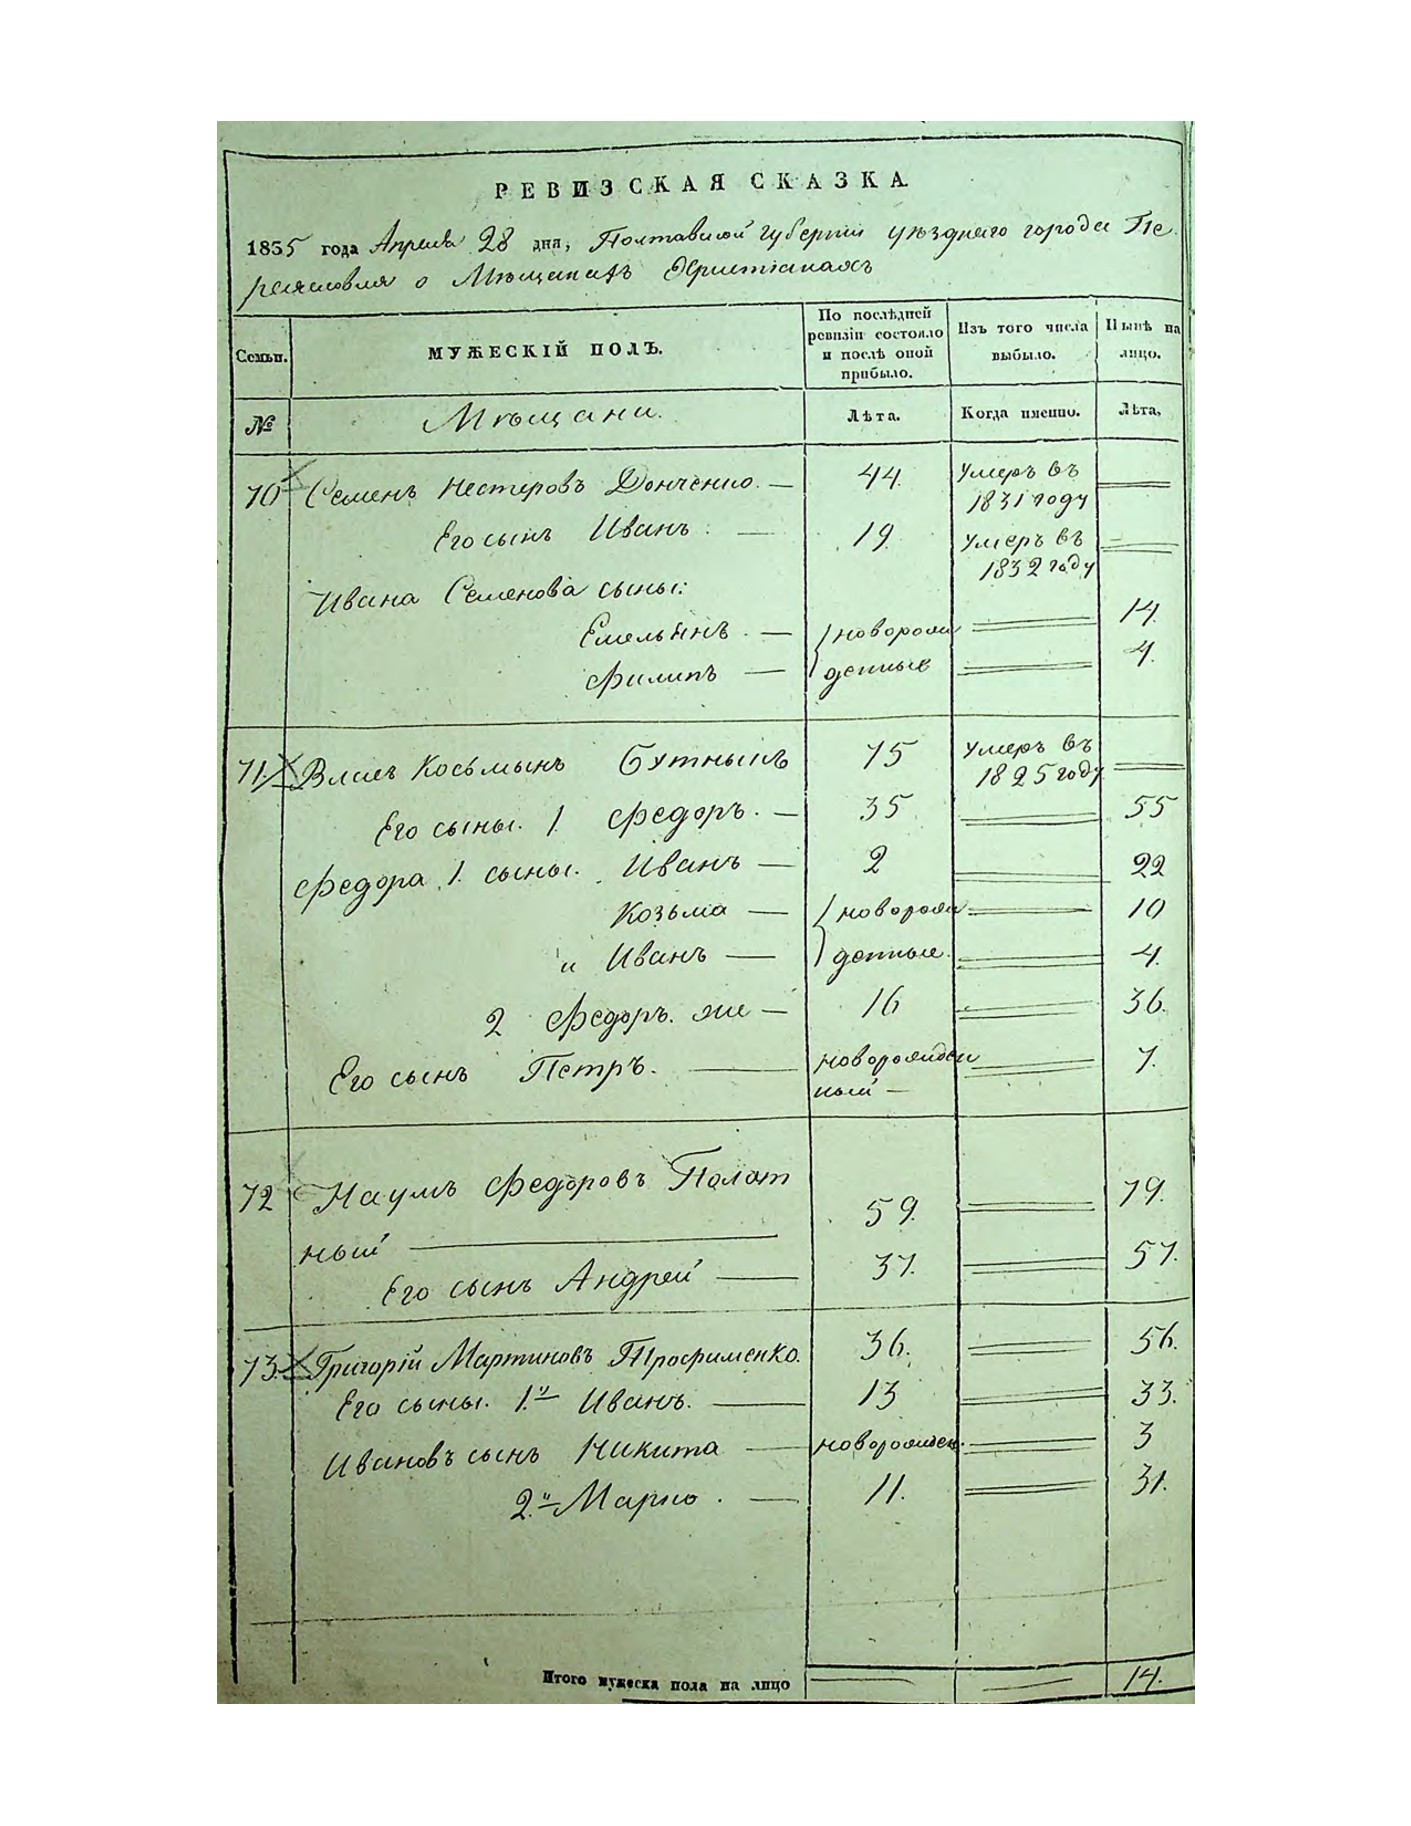 РЕВИЗСКАЯ СКАЗКА
1835 года Апреля 28 дня, Полтавской губернии уѣзднаго города Пе
реяславля о Мѣщанахъ Христіанахъ
Семьи. МУЖЕСКІЙ ПОЛЪ. По послѣдней ревизіи состояло и послѣ оной прибыло. Изъ того числа выбыло. Нынѣ на лицо.
№ Мѣщани. Лѣта. Когда именно. Лѣта.
70 Семенъ Нестеровъ Донченко. — 44. Умеръ въ 1831 году
Его сынъ Иванъ. — 19. Умеръ въ 1832 году
Ивана Семенова сыны:
Емельянъ. — новорож 14.
Филипъ — денные 4.
71. Косьмынъ Бутный 75 Умеръ въ 1825 году
Его сыны. 1. Федоръ. — 35 55
Федора 1. сыны. Иванъ — 2 22
Козьма — новорож 10
и Иванъ — денные. 4.
2 Федоръ. же — 16 36.
Его сынъ Петръ. — новорожден 7.
ный —
72 Наумъ Федоровъ Полот 59. 79.
ный —
Его сынъ Андрей — 37. 57.
73. Григорій Мартиновъ Трофименко. 36. 56.
Его сыны. 1.й Иванъ. — 13 33.
Ивановъ сынъ Никита — новорожден. 3
2.й Марко. — 11. 31.
Итого мужеска пола на лицо 14.